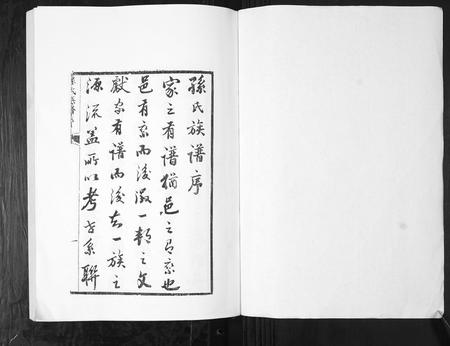 孫氏族譜序
家之有譜猶邑之有乘也
邑有乘而後徵一邦之文
獻家有譜而後知一族之
源流蓋所以考世系聯